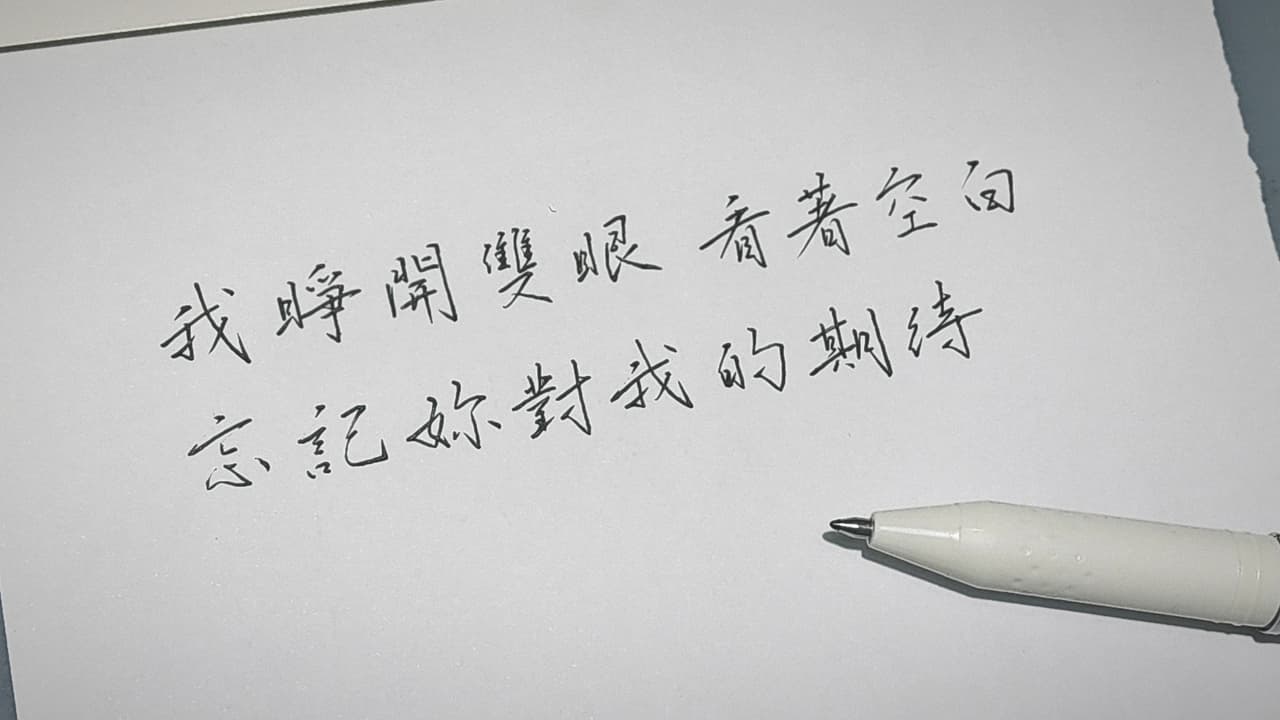 我睜開雙眼 看著空白
忘記妳對我的期待